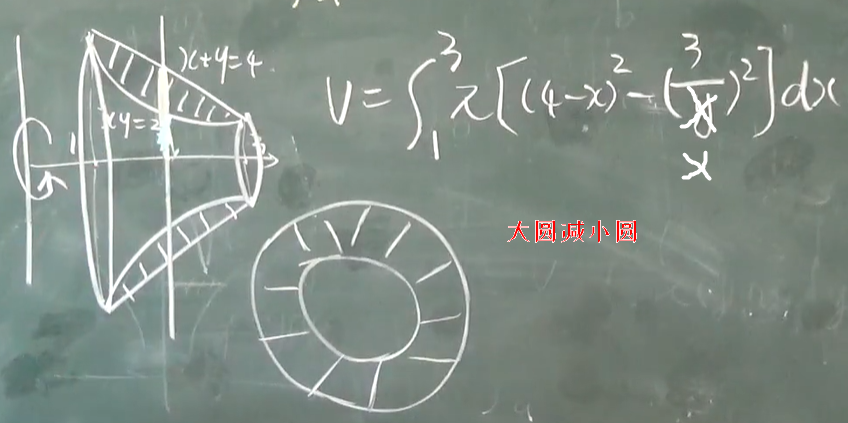 x+y=4
xy=3
1
V=∫₁³ π[(4-x)²-(3/x)²]dx
大圆减小圆